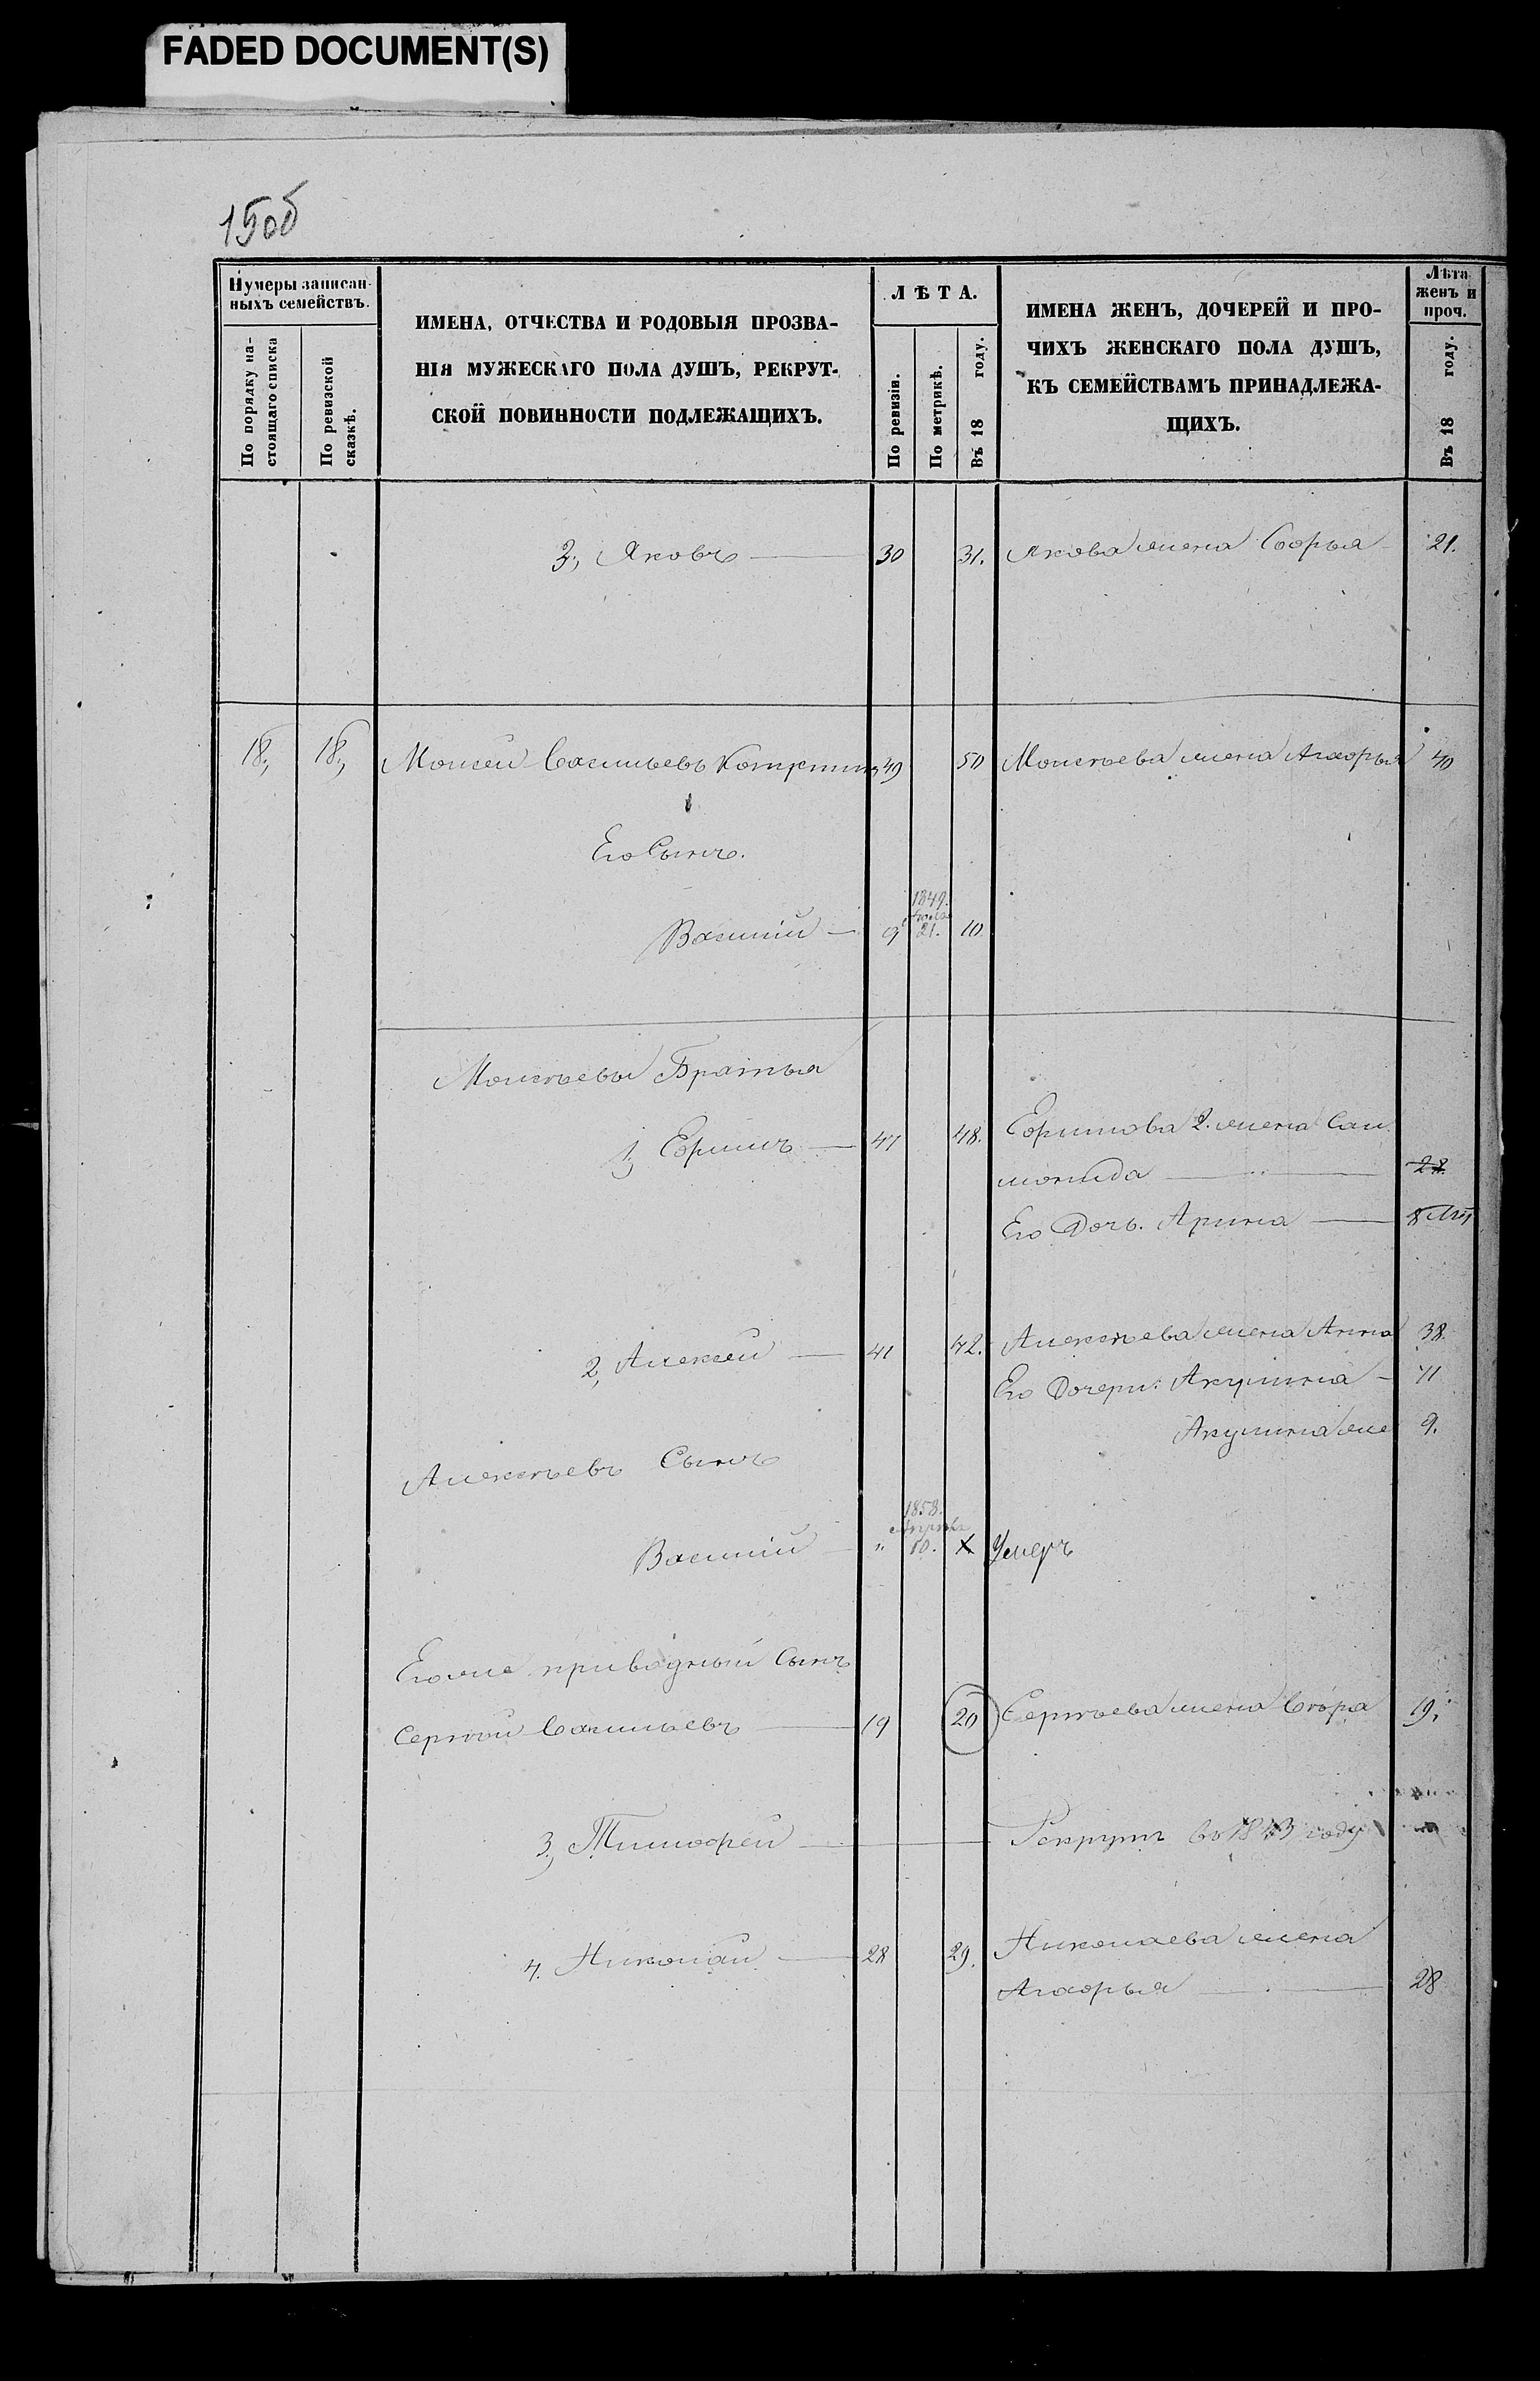 FADED DOCUMENT(S)
15об
Нумеры записан-
ныхъ семействъ.
По порядку на-
стоящаго списка
По ревизской
сказкѣ.
ИМЕНА, ОТЧЕСТВА И РОДОВЫЯ ПРОЗВА-
НІЯ МУЖЕСКАГО ПОЛА ДУШЪ, РЕКРУТ-
СКОЙ ПОВИННОСТИ ПОДЛЕЖАЩИХЪ.
ЛѢТА.
По ревизіи.
По метрикѣ.
Въ 18 году.
ИМЕНА ЖЕНЪ, ДОЧЕРЕЙ И ПРО-
ЧИХЪ ЖЕНСКАГО ПОЛА ДУШЪ,
КЪ СЕМЕЙСТВАМЪ ПРИНАДЛЕЖА-
ЩИХЪ.
Лѣта
женъ и
проч.
Въ 18 году.
3, Яковъ 30 31. Якова жена Софья 21.
18, 18, Моисей Васильевъ 49 50 Моисѣева жена Агафья 40
Его Сынъ.
Василій 9 1849. 21. 10
Моисѣевы Братья
1, Ефимъ 47 48. Ефимова 2. жена Сало
монида 28
Его Дочь. Арина
2, Алексѣй 41 42. Алексѣева жена Анна 38.
Его Дочери: Акулина 11
Акулина же 9.
Алексѣевъ Сынъ
Василій " 1858. Апрѣля 10. х Умеръ
Его же приводный Сынъ
Сергѣй Васильевъ 19 20 Сергѣева жена Вѣра 19,
3, Тимофей Рекрутъ въ 1843 году
4. Николай 28 29. Николаева жена
Агафья 28